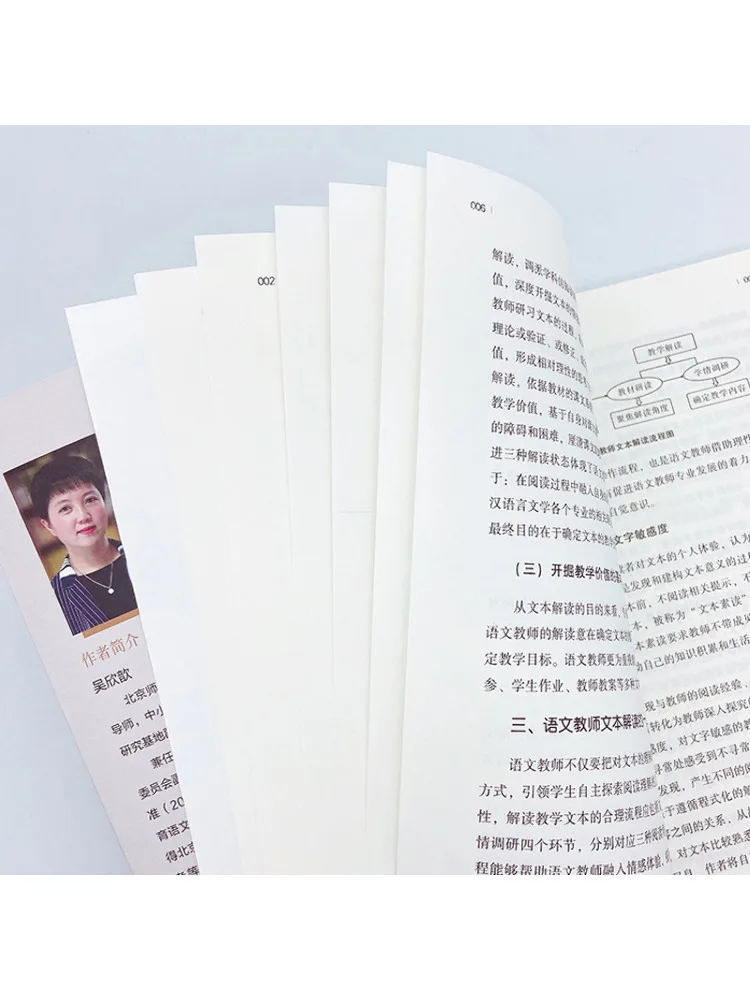 作者简介
吴欣歆
北京师
导师，中小
研究基地副
兼任
委员会副
准（20
育语文
得北京
002
006
解读，调派学科领域
值，深度开掘文本的
教师研习文本的过程
理论或验证、或修正、或
值，形成相对理性的思考
解读，依据教材的课文系
教学价值，基于自身对
的障碍和困难，厘清课文
进三种解读状态体现了
于：在阅读过程中融入自
汉语言文学各个专业的相关
最终目的在于确定文本的教
（三）开掘教学价值的
从文本解读的目的来看，
语文教师的解读意在确定文本的
定教学目标。语文教师更为重视
参、学生作业、教师教案等多种
三、语文教师文本解读的
语文教师不仅要把对文本的理解
方式，引领学生自主探索阅读理解
性，解读教学文本的合理流程应包
情调研四个环节，分别对应三种阅读
程能够帮助语文教师融入情感体验，
教学解读
教材研读
学情调研
聚焦解读角度
确定教学内容
教师文本解读流程图
作流程，也是语文教师借助理性
有促进语文教师专业发展的着力
自觉意识。
文字敏感度
读者对文本的个人体验，认为
是发现和建构文本意义的过
本前，不阅读相关提示，不
本，被称为“文本素读”
本素读要求教师不带成见
动自己的知识积累和生活
现与教师的阅读经验、
转化为教师深入探究
感度，对文字敏感的教
寻常处感受到不寻常
发现，产生不同的阅
于遵循程式化的解
容之间的关系，从
，对文本比较熟悉
。作者将自